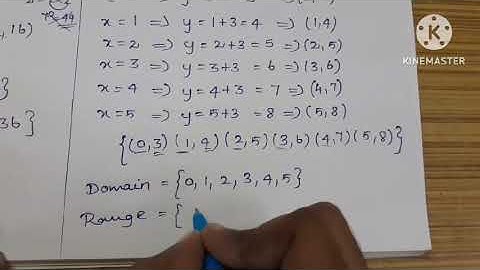 , 16)
x=1 ⇒ y=1+3=4 ⇒ (1,4)
x=2 ⇒ y=2+3=5 ⇒ (2,5)
x=3 ⇒ y=3+3=6 ⇒ (3,6)
x=4 ⇒ y=4+3=7 ⇒ (4,7)
x=5 ⇒ y=5+3=8 ⇒ (5,8)
36}
{(0,3) (1,4) (2,5) (3,6) (4,7) (5,8)}
Domain = {0, 1, 2, 3, 4, 5}
Range = {
KINEMASTER